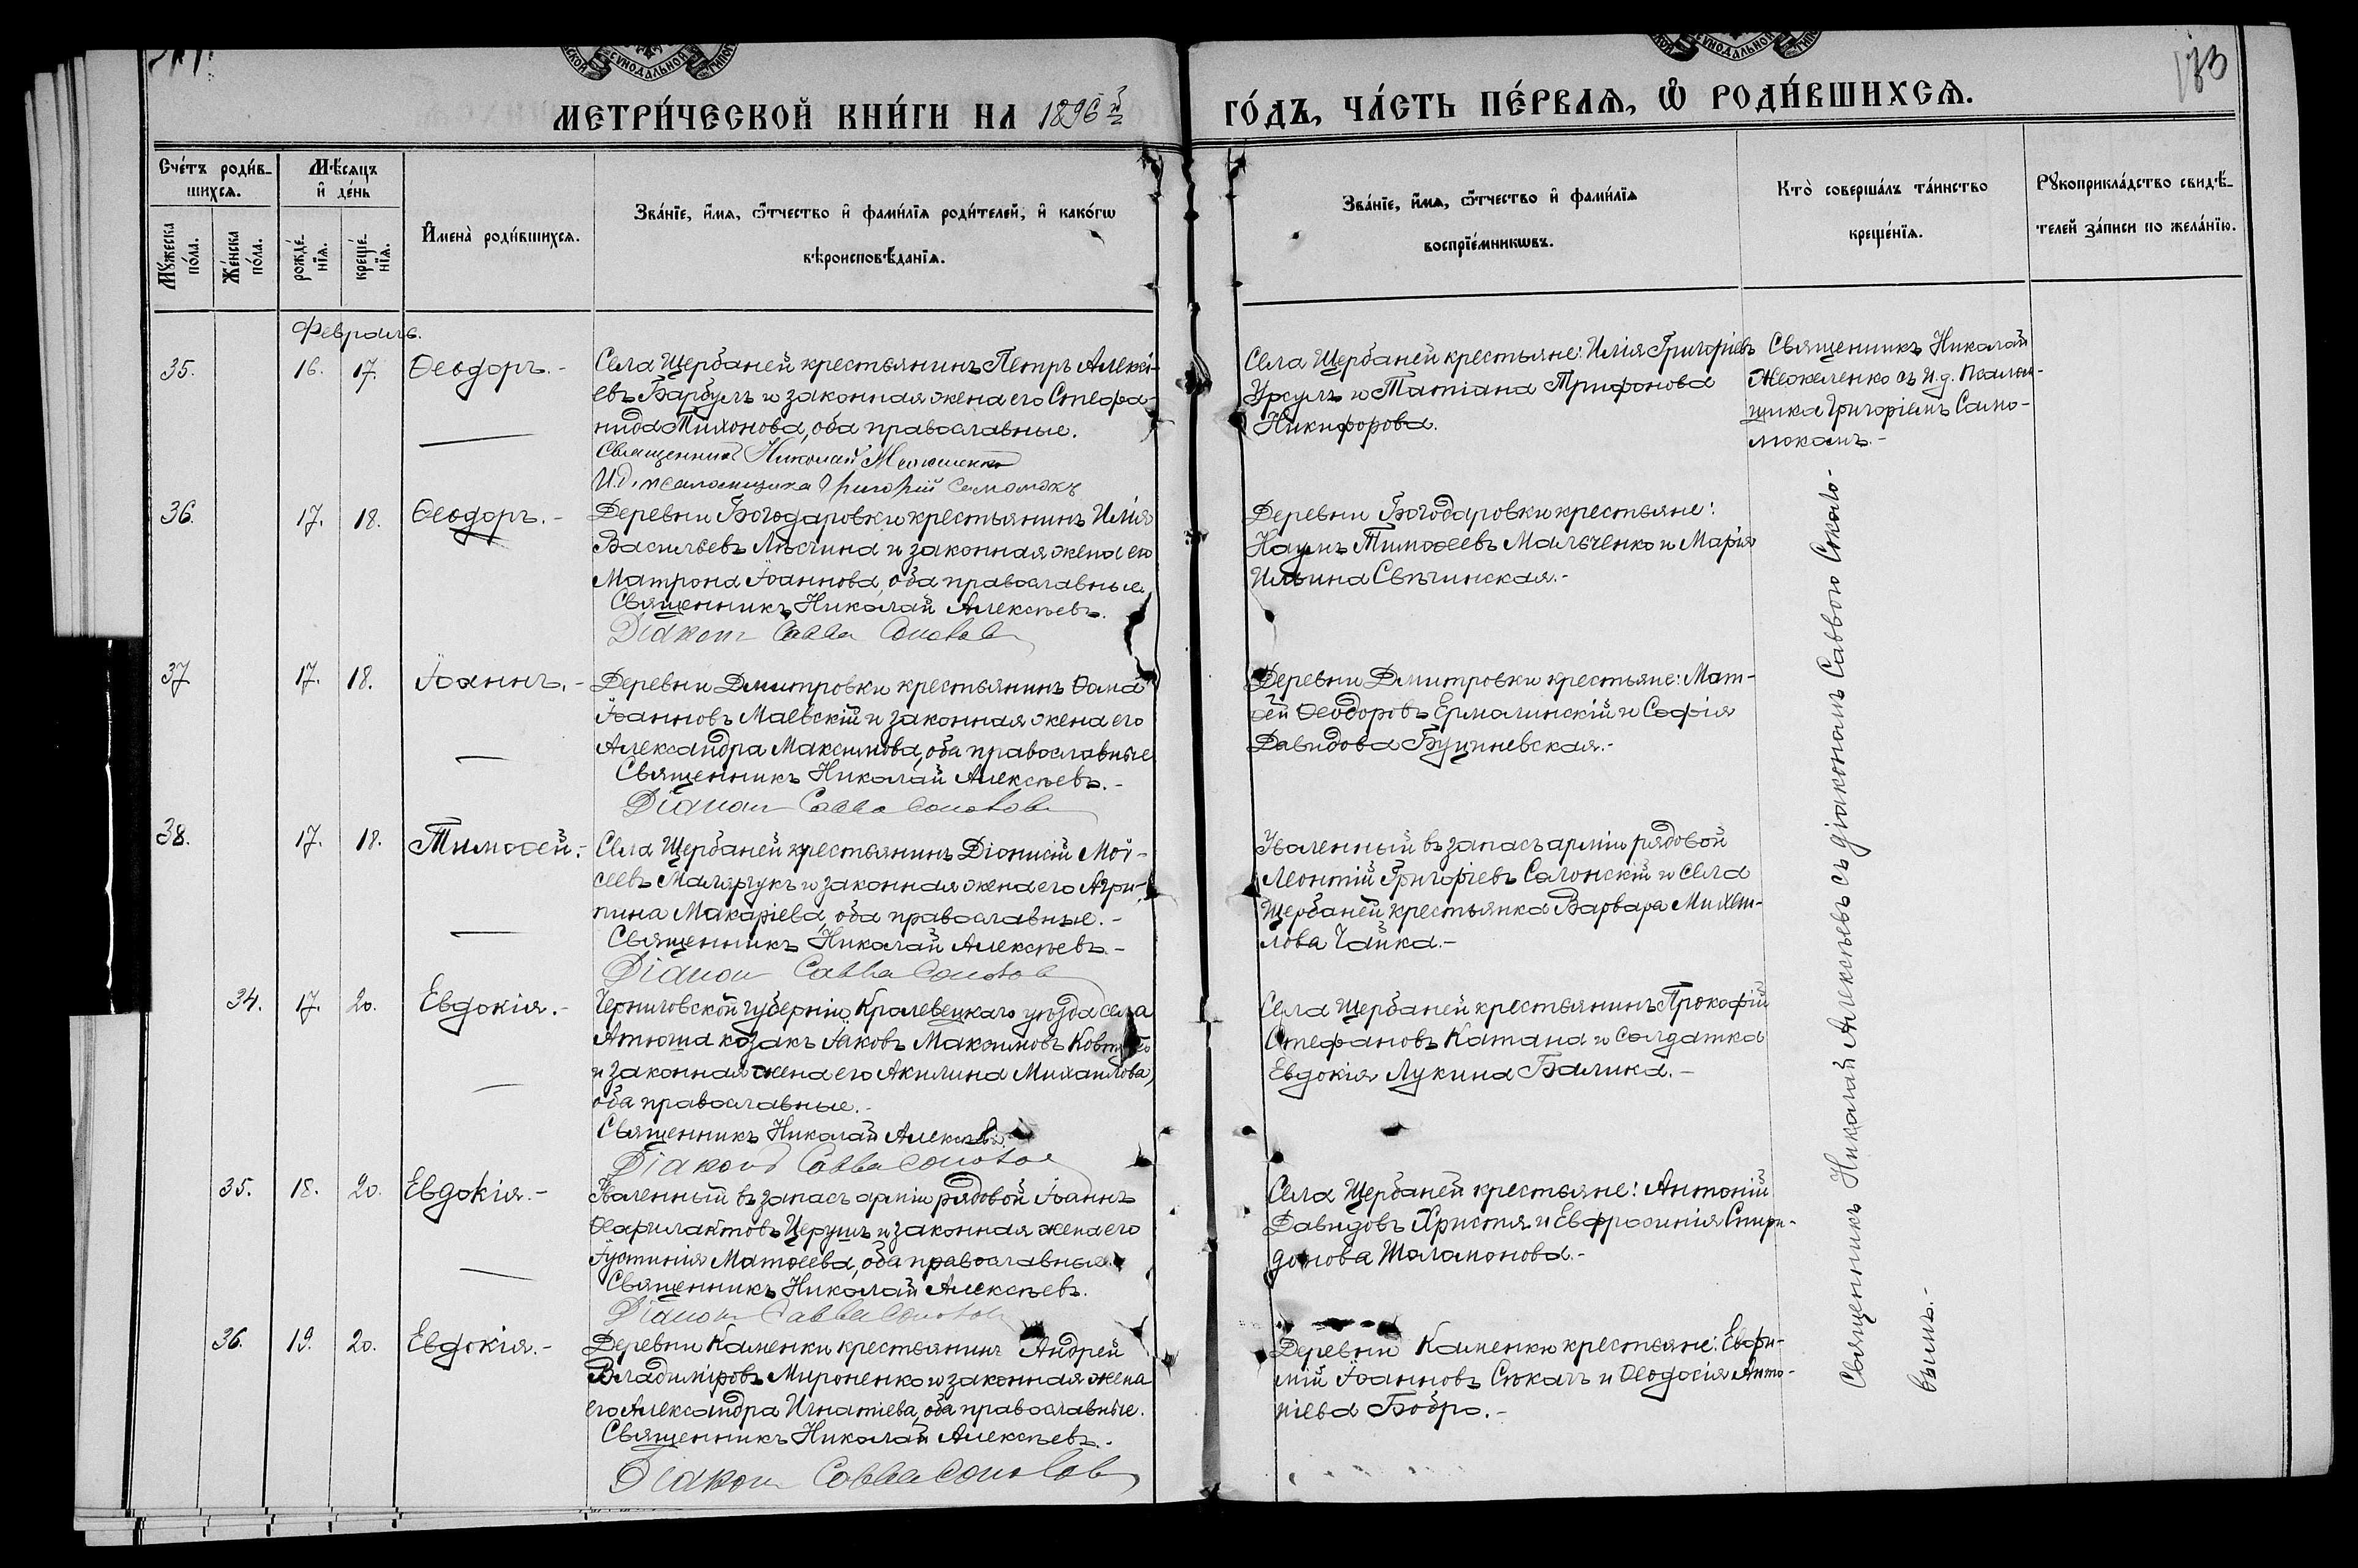 МЕТРИ́ЧЕСКОЙ КНИ́ГИ НА 1896й
ГО́ДЪ, ЧА́СТЬ ПЕ́РВАѦ, Ѡ҆ РОДИ́ВШИХСѦ.
173
Сче́тъ роди́в-
шихсѧ.
Мꙋ́жеска
по́ла.
Же́нска
по́ла.
Мѣ́сѧцъ
и҆ де́нь
рожде́-
нїѧ.
креще́-
нїѧ.
И҆мена̀ роди́вшихсѧ.
Зва́нїе, и҆́мѧ, ѻ҆́тчество и҆ фами́лїѧ роди́телей, и҆ како́гѡ
вѣроисповѣ́данїѧ.
Зва́нїе, и҆́мѧ, ѻ҆́тчество и҆ фами́лїѧ
воспрїе́мникѡвъ.
Кто̀ соверша́лъ та́инство
креще́нїѧ.
Рꙋкоприкла́дство свидѣ́-
телей за́писи по жела́нїю.
Февраль.
35. 16. 17. Ѳеодоръ.-
Села Щербаней крестьянинъ Петръ Алексі-
евъ Барбулъ и законная жена его Стефа-
нида Тихонова, оба православные.
Священникъ Николай
И.д. псаломщика Григорій Самомокъ
Села Щербаней крестьяне: Илія Григоріевъ
Урсулъ и Татіана Трифонова
Никифорова.
Священникъ Николай
съ И.д. псалом-
щика Григоріемъ Само-
мокомъ.-
36. 17. 18. Ѳеодоръ.-
Деревни Богодаровки крестьянинъ Илія
Васильевъ Лисчина и законная жена его
Матрона Іоаннова, оба православные.
Священникъ Николай Алексѣевъ.
Діаконъ Савва Соколов
Деревни Богодаровки крестьяне:
Наумъ Тимоѳеевъ Мальченко и Марія
Ильина Свѣчинская.-
37 17. 18. Іоаннъ.-
Деревни Дмитровки крестьянинъ Ѳома
Іоанновъ Маевскій и законная жена его
Александра Максимова, оба православные
Священникъ Николай Алексѣевъ.-
Діаконъ Савва Соколов
Деревни Дмитровки крестьяне: Мат-
ѳей Ѳеодоровъ Ермалинскій и Софія
Давидова Буциневская.-
38. 17. 18. Тимоѳей.-
Села Щербаней крестьянинъ Діонисій Мой-
сеевъ Малярчукъ и законная жена его Агри-
пина Макаріева, оба православные.-
Священникъ Николай Алексѣевъ.-
Діаконъ Савва Соколов
Уволенный въ запасъ арміи рядовой
Леонтій Григоріевъ Салонскій и села
Щербаней крестьянка Варвара Михаи-
лова Чайка.-
34. 17. 20. Евдокія.-
Черниговской губерніи Кролевецкаго уѣзда села
Атюша козакъ Іаковъ Максимовъ
и законная жена его Акилина Михаилова,
оба православные.-
Священникъ Николай Алексѣевъ.
Діаконъ Савва Соколов
Села Щербаней крестьянинъ Прокофій
Стефановъ Катана и солдатка
Евдокія Лукина Балика.-
35. 18. 20. Евдокія.-
Уволенный въ запасъ арміи рядовой Іоаннъ
Ѳеофилактовъ Церушъ и законная жена его
Іустинія Матѳеева, оба православные.
Священникъ Николай Алексѣевъ.
Діаконъ Савва Соколов
Села Щербаней крестьяне: Антоній
Давидовъ Христя и Евфросинія Спири-
донова Шаламонова.-
36. 19. 20. Евдокія.-
Деревни Каменки крестьянинъ Андрей
Владиміровъ Мироненко и законная жена
его Александра Игнатіева, оба православные.
Священникъ Николай Алексѣевъ.-
Діаконъ Савва Соколов
Деревни Каменки крестьяне: Евфи-
мій Іоанновъ Сюкачъ и Ѳеодосія Анто-
ніева Бобро.-
Священникъ Николай Алексѣевъ съ діакономъ Саввою Соколо-
вымъ.-